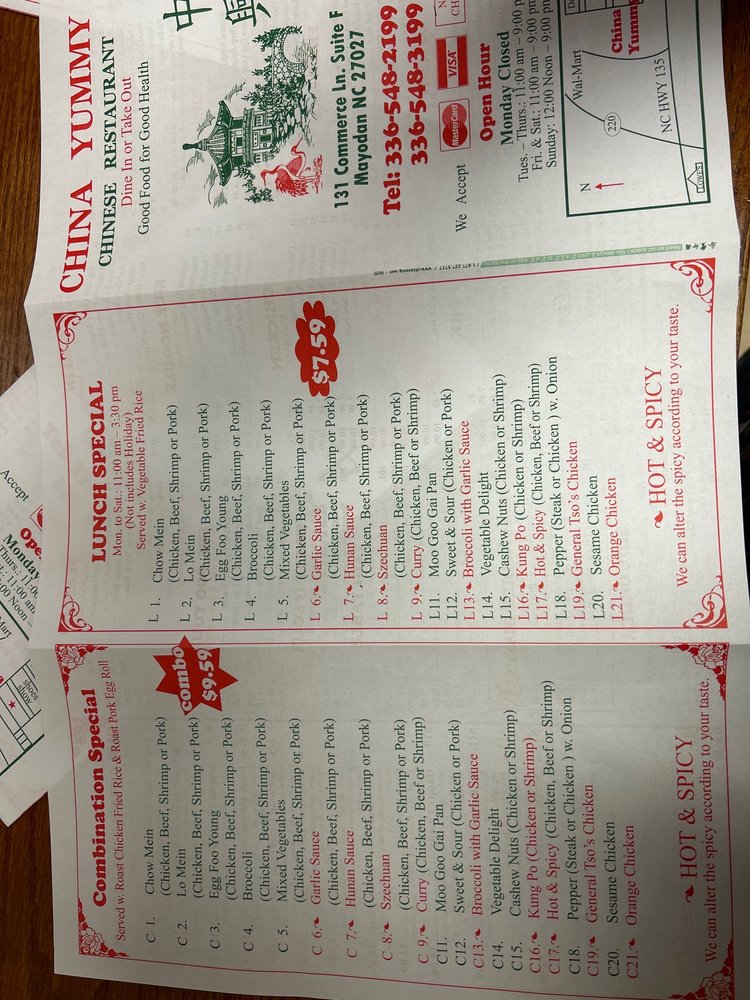 CHINA YUMMY
CHINESE RESTAURANT
Dine In or Take Out
Good Food for Good Health
中
興
131 Commerce Ln. Suite F
Mayodan NC 27027
Tel: 336-548-2199
336-548-3199
We Accept
MasterCard
VISA
Open Hour
Monday Closed
Tues. – Thurs.: 11:00 am – 9:00 p
Fri. & Sat.: 11:00 am – 9:00 pm
Sunday: 12:00 Noon – 9:00 pm
N
Wal-Mart
220
China
Yummy
NC HWY 135
LUNCH SPECIAL
Mon. to Sat.: 11:00 am – 3:30 pm
(Not includes Holiday)
Served w. Vegetable Fried Rice
$7.59
L 1. Chow Mein
(Chicken, Beef, Shrimp or Pork)
L 2. Lo Mein
(Chicken, Beef, Shrimp or Pork)
L 3. Egg Foo Young
(Chicken, Beef, Shrimp or Pork)
L 4. Broccoli
(Chicken, Beef, Shrimp or Pork)
L 5. Mixed Vegetables
(Chicken, Beef, Shrimp or Pork)
L 6. Garlic Sauce
(Chicken, Beef, Shrimp or Pork)
L 7. Hunan Sauce
(Chicken, Beef, Shrimp or Pork)
L 8. Szechuan
(Chicken, Beef, Shrimp or Pork)
L 9. Curry (Chicken, Beef or Shrimp)
L11. Moo Goo Gai Pan
L12. Sweet & Sour (Chicken or Pork)
L13. Broccoli with Garlic Sauce
L14. Vegetable Delight
L15. Cashew Nuts (Chicken or Shrimp)
L16. Kung Po (Chicken or Shrimp)
L17. Hot & Spicy (Chicken, Beef or Shrimp)
L18. Pepper (Steak or Chicken ) w. Onion
L19. General Tso's Chicken
L20. Sesame Chicken
L21. Orange Chicken
HOT & SPICY
We can alter the spicy according to your taste.
Combination Special
Served w. Roast Chicken Fried Rice & Roast Pork Egg Roll
combo
$9.59
C 1. Chow Mein
(Chicken, Beef, Shrimp or Pork)
C 2. Lo Mein
(Chicken, Beef, Shrimp or Pork)
C 3. Egg Foo Young
(Chicken, Beef, Shrimp or Pork)
C 4. Broccoli
(Chicken, Beef, Shrimp or Pork)
C 5. Mixed Vegetables
(Chicken, Beef, Shrimp or Pork)
C 6. Garlic Sauce
(Chicken, Beef, Shrimp or Pork)
C 7. Hunan Sauce
(Chicken, Beef, Shrimp or Pork)
C 8. Szechuan
(Chicken, Beef, Shrimp or Pork)
C 9. Curry (Chicken, Beef or Shrimp)
C11. Moo Goo Gai Pan
C12. Sweet & Sour (Chicken or Pork)
C13. Broccoli with Garlic Sauce
C14. Vegetable Delight
C15. Cashew Nuts (Chicken or Shrimp)
C16. Kung Po (Chicken or Shrimp)
C17. Hot & Spicy (Chicken, Beef or Shrimp)
C18. Pepper (Steak or Chicken ) w. Onion
C19. General Tso's Chicken
C20. Sesame Chicken
C21. Orange Chicken
HOT & SPICY
We can alter the spicy according to your taste.
Accept
Ope
Monday
Thurs.: 11:0
11:00 am
00 Noon –
Mart
shoes
show